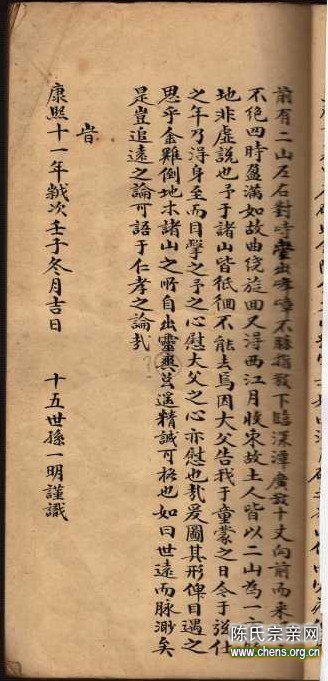 前有二山左右對峙疊出嶂不勝指數下臨深潭廣數十丈向前而來
不絕四時盈滿如故曲繞旋回又得西江月收來故土人皆以二山為一
地非虛說也予于諸山皆低徊不能去焉因大父告我于童蒙之日今于強仕
之年乃得身至而目擊之予之心慰大父之心亦慰也哉爰圖其形俾目遇之
思乎金雞倒地木諸山之所自出靈爽莫遙精誠可格也如曰世遠而脈渺矣
是豈追遠之論可語于仁孝之論哉
旹
康熙十一年歲次壬子冬月吉日 十五世孫一明謹識
陈氏宗亲网
www.chens.org.cn